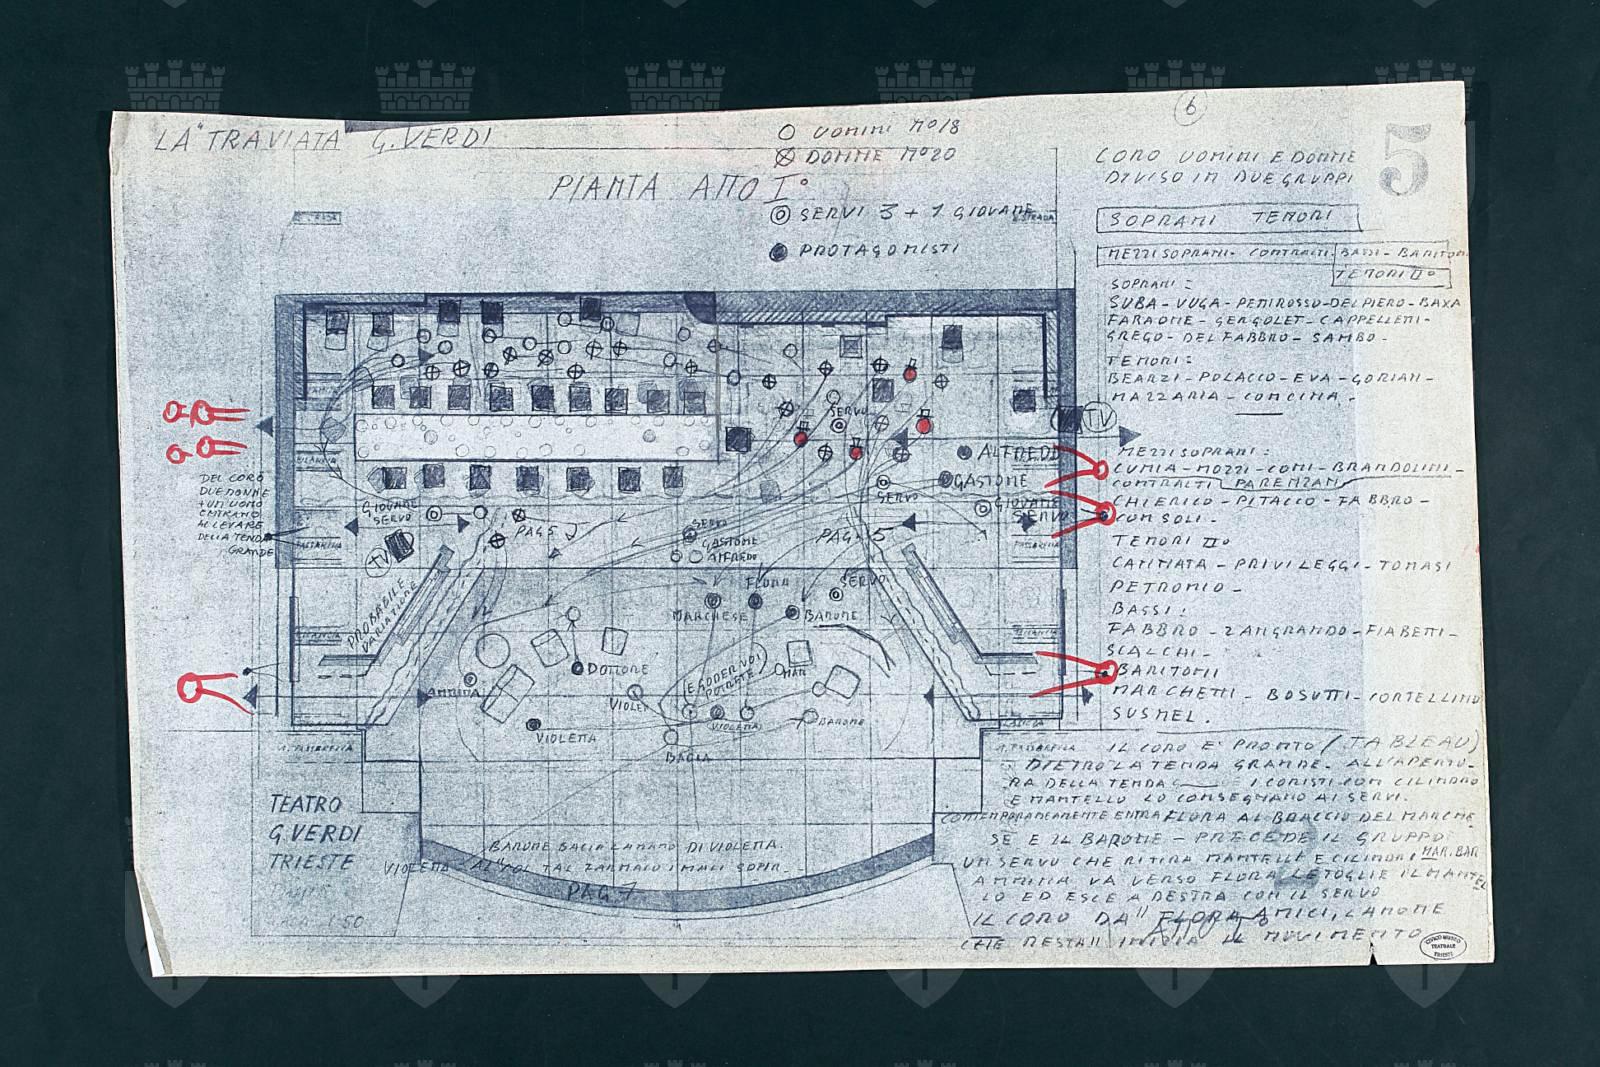 LA "TRAVIATA G. VERDI
PIANTA ATTO I°
UOMINI N°18
DONNE N°20
SERVI 3 + 1 GIOVANE
PROTAGONISTI
6
5
CORO UOMINI E DONNE
DIVISO IN DUE GRUPPI
SOPRANI TENORI
MEZZISOPRANI - CONTRALTI - BASSI - BARITONI
TENORI II°
SOPRANI:
SUBA - VUGA - PETTIROSSO - DEL PIERO - BAXA
FARAONE - GERGOLET - CAPPELLETTI -
GREGO - DEL FABBRO - SAMBO -
TENORI:
BEARZI - POLACCO - EVA - GORIAN -
NAZZARIA - CONCINA -
MEZZISOPRANI:
CUMIA - MOZZI - COMI - BRANDOLINI -
CONTRALTI PARENZAN
CHIERICO - PITACCO - FABBRO -
CONSOLI -
TENORI II°
CANTIATA - PRIVILEGGI - TOMASI
PETRONIO -
BASSI:
FABBRO - ZANGRANDO - FIABETTI -
SCALCHI -
BARITONI
MARCHETTI - BOSUTTI - CORTELLINO
SUSMEL.
IL CORO E' PRONTO (TABLEAU)
DIETRO LA TENDA GRANDE. ALL'APERTU-
RA DELLA TENDA I CORISTI CON CILINDRO
E MANTELLO LO CONSEGNANO AI SERVI.
CONTEMPORANEAMENTE ENTRA FLORA AL BRACCIO DEL MARCHE
SE E IL BARONE - PRECEDE IL GRUPPO
UN SERVO CHE RITIRA MANTELLI E CILINDRI MAR. BAR
ANNINA VA VERSO FLORA LE TOGLIE IL MANTEL
LO ED ESCE A DESTRA CON IL SERVO
IL CORO DA "FLORA AMICI, LA NOTTE
CHE RESTA" INIZIA IL MOVIMENTO
ATTO I°
DEL CORO
DUE DONNE
+ UN UOMO
ENTRANO
ALLEVARE
DELLA TENDA
GRANDE
SERVO
TV
ALFREDO
GASTONE
SERVO
GIOVANE
SERVO
GIOVANE
SERVO
PAG 5
PAG. 5
TV
PROBABILE
VARIAZIONE
SERVO
GASTONE
ALFREDO
FLORA
SERVO
MARCHESE
BARONE
DOTTORE
ANNINA
VIOLET
(E GODER VOI
POTRETE)
MAR
VIOLETTA
VIOLETTA
BARONE
BACIA
TEATRO
G. VERDI
TRIESTE
BARONE BACIA LA MANO DI VIOLETTA.
PAG. 1
CIVICO MUSEO
TEATRALE
TRIESTE